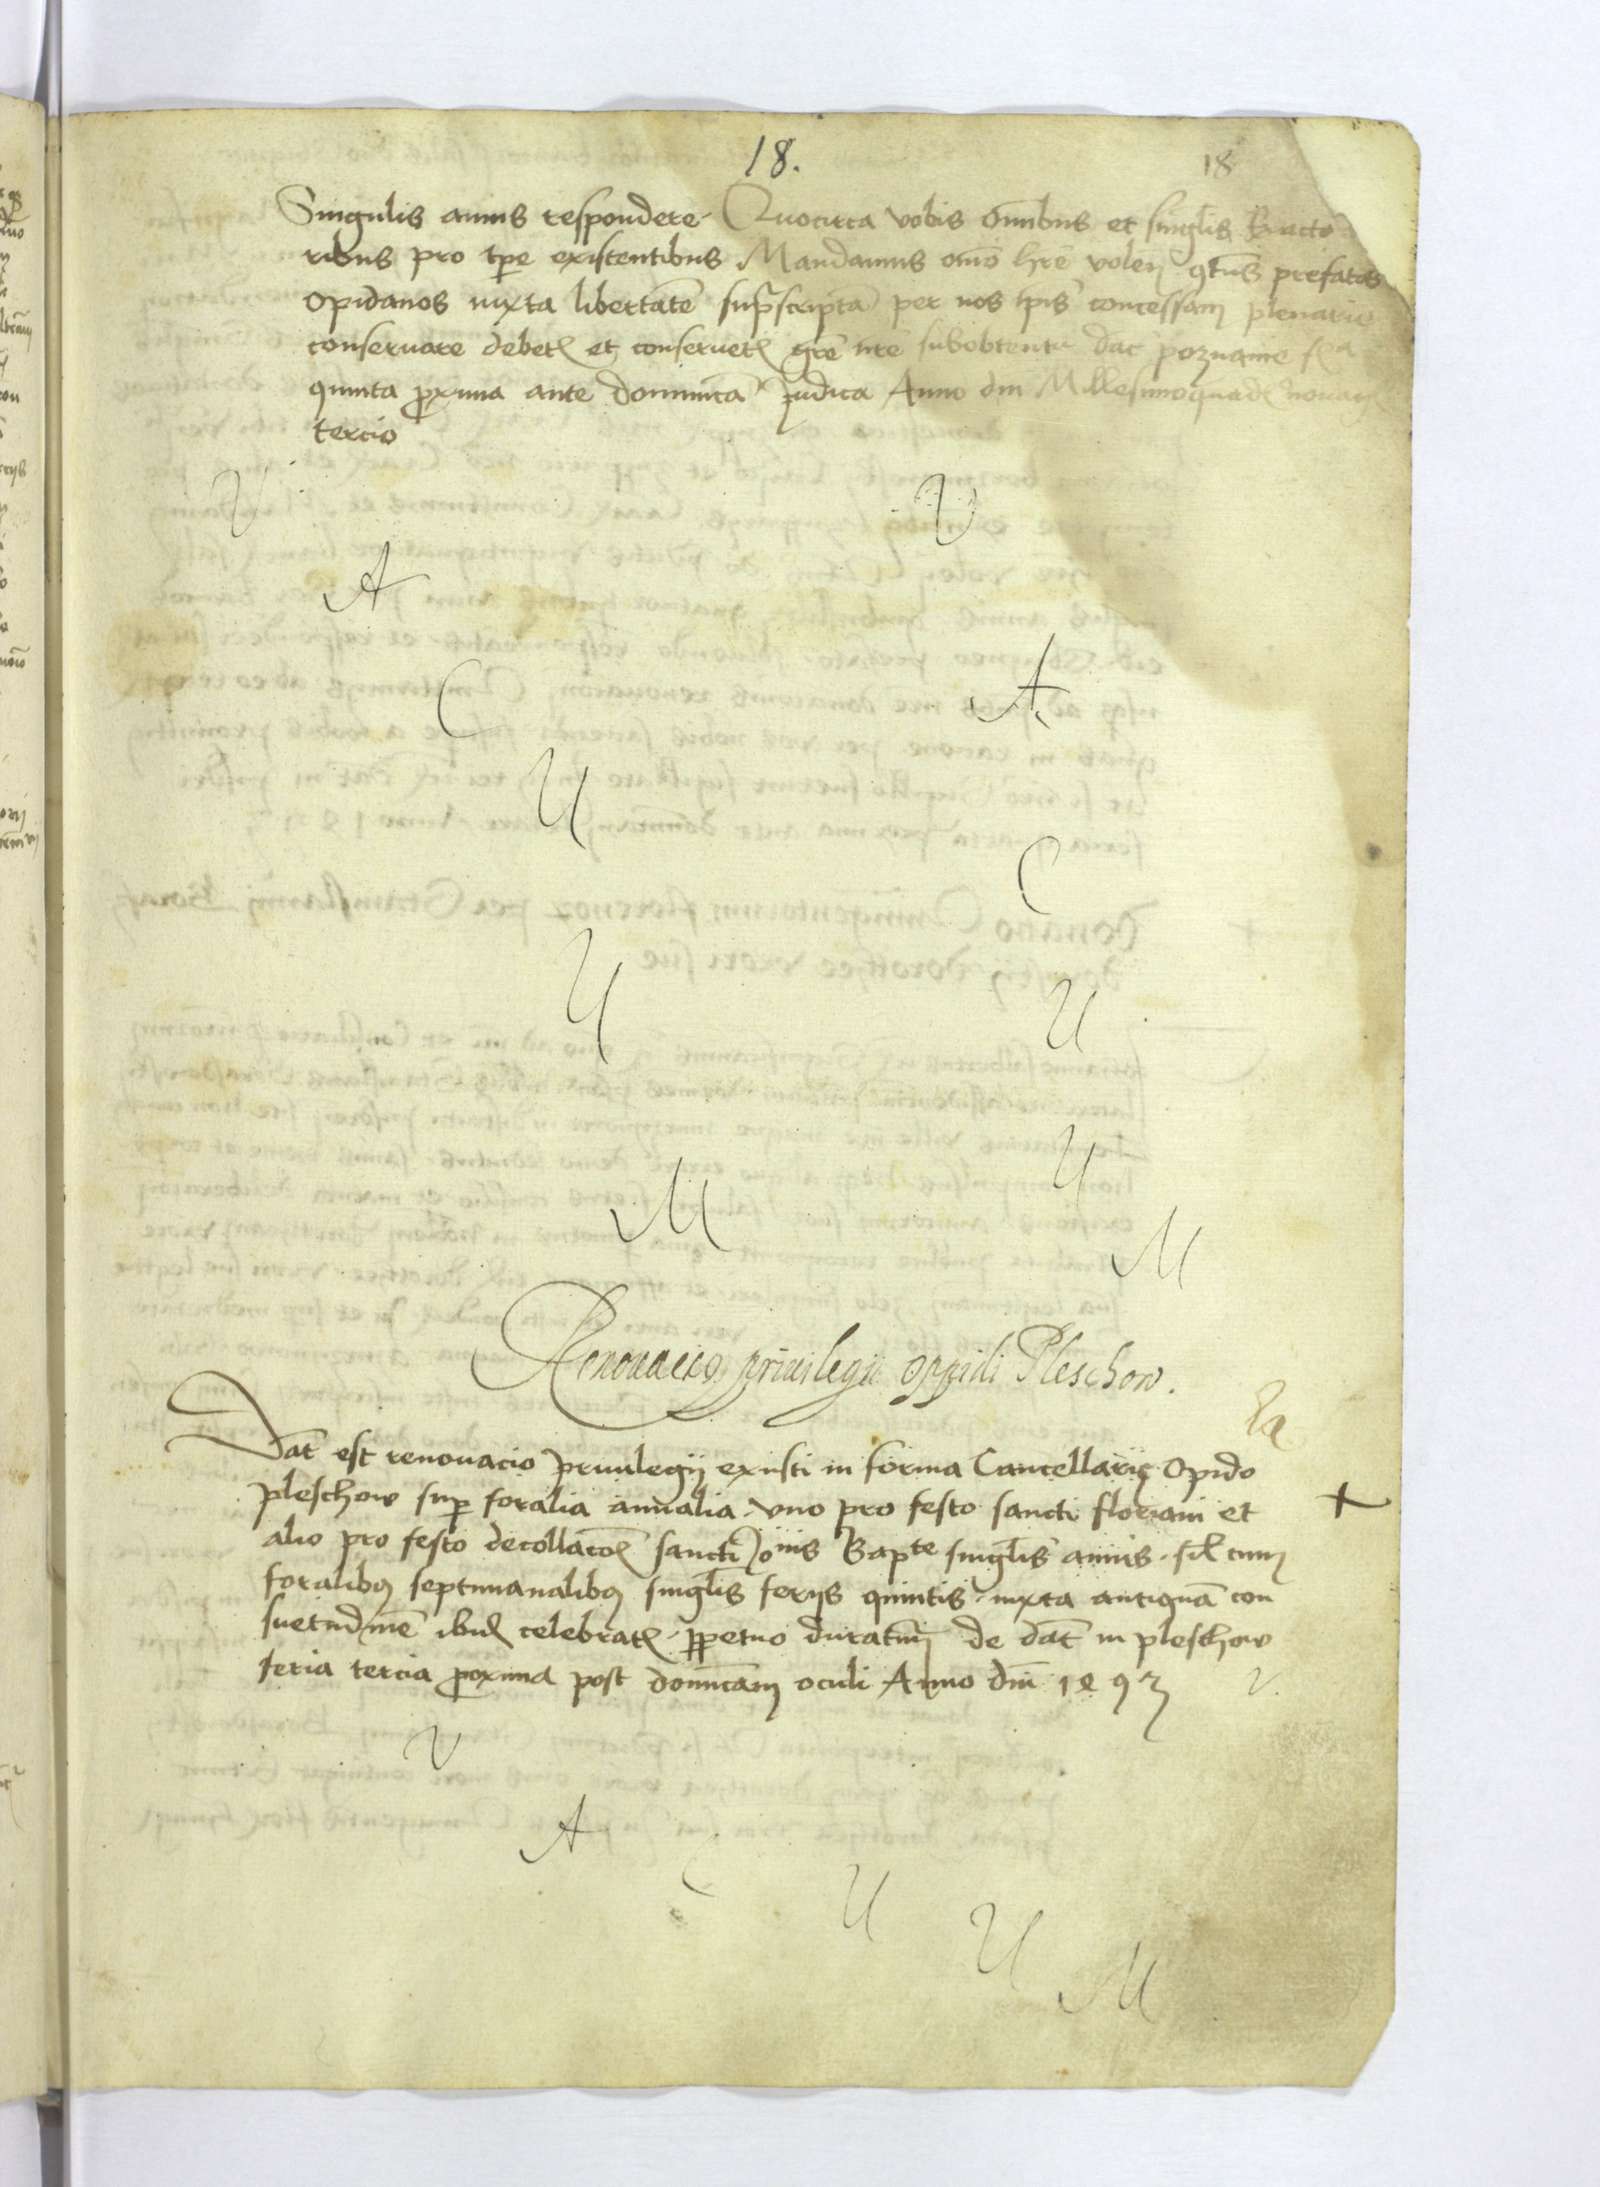 18.
18
Singulis annis respondere. Quocirca vobis omībus et singłis Exacto
ribus pro tpe existentibus Mandamus om̄o hr̄e volen̄ qt̄us prefatos
Opidanos iuxta libertatē supscriptā per nos ip̄is concessam plenarie
conseruare debet{is} et conseruet{is} gr̄e nr̄e subobtentu dat̄ poznanie fc̄ª
quinta p̄xima ante dominicā Judica Anno dni Millesimoquad{ri} nonag{es}
tercio
V
V
A
C
A
U
C
U
U
U
M
M
Renouacio priuilegii oppidi Pleschow.
Dat̄ est renouacio priuilegij exusti in forma Cancellarię Opido
pleschow sup foralia annalia. vno pro festo sancti floriani et
alio pro festo decollacōs sancti Jonis Bapte singłis annis. sił cum
foralibus septimanalibus singłis ferijs quintis. iuxta antiquā con
suetudinē ibid celebrat{is}. ppetuo duratur̄ de dat̄ in pleschow
feria tercia proxima post dominicam oculi Anno dni 1493
V.
V
A
C
U
U
M